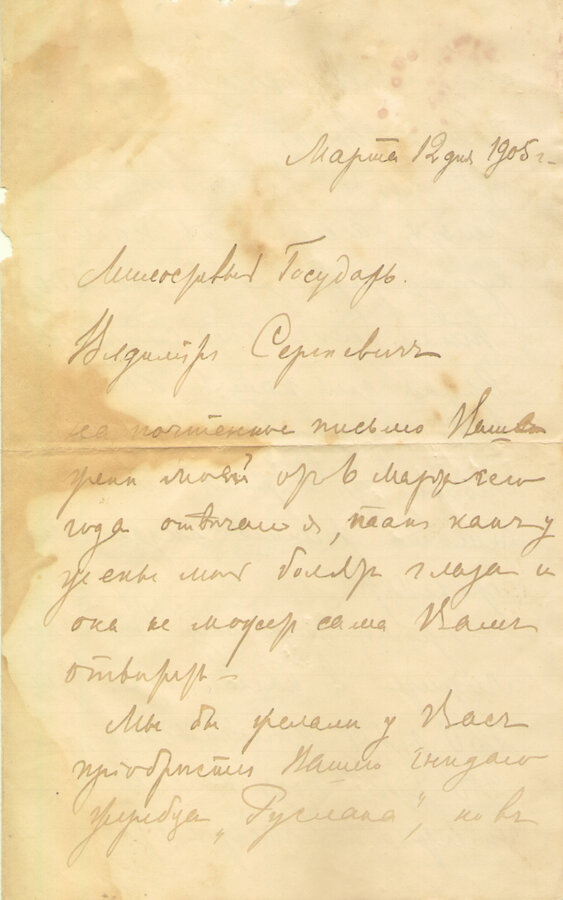 Марта 12 дня 1905 г.
Милостивый Государь.
Владимiръ Сергѣевичъ
на почтенное письмо Ваше
жены моей от 8 марта сего
года отвѣчаю я, такъ какъ у
жены моей болят глаза и
она не может сама Вамъ
отвѣтить –
Мы бы желали у Васъ
прiобрѣсти Вашего гнѣдого
жеребца „Руслана", но въ